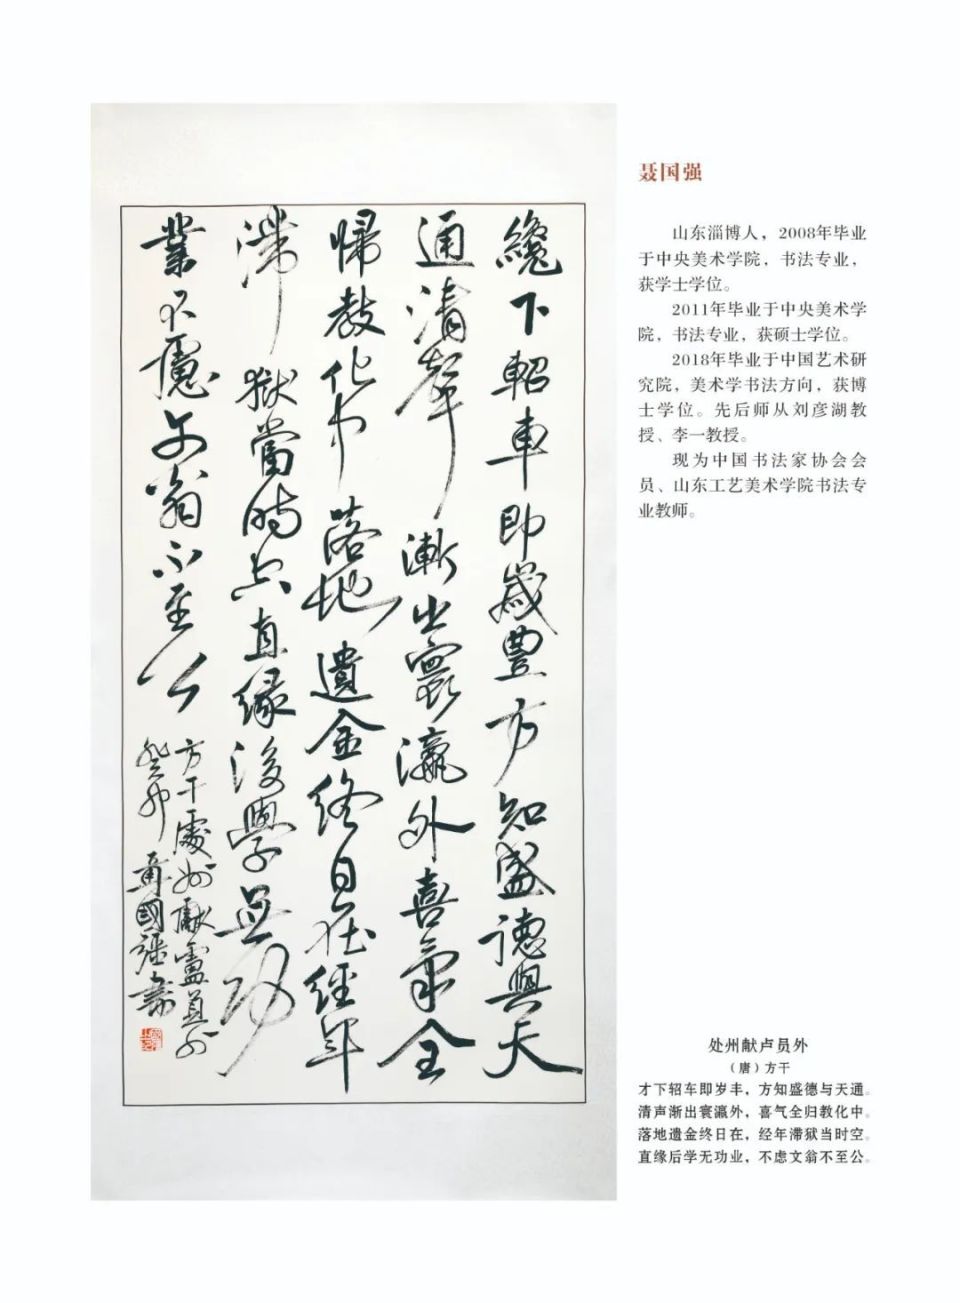 纔下軺車即歲豐方知盛德與天
通清聲漸出寰瀛外喜氣全
歸教化中落地遺金終日在經年
滯獄當時空直緣後學無功
業不慮文翁不至公
方干處州獻盧員外
癸卯聶國強書
聂国强
山东淄博人，2008年毕业
于中央美术学院，书法专业，
获学士学位。
2011年毕业于中央美术学
院，书法专业，获硕士学位。
2018年毕业于中国艺术研
究院，美术学书法方向，获博
士学位。先后师从刘彦湖教
授、李一教授。
现为中国书法家协会会
员、山东工艺美术学院书法专
业教师。
处州献卢员外
（唐）方干
才下轺车即岁丰，方知盛德与天通。
清声渐出寰瀛外，喜气全归教化中。
落地遗金终日在，经年滞狱当时空。
直缘后学无功业，不虑文翁不至公。